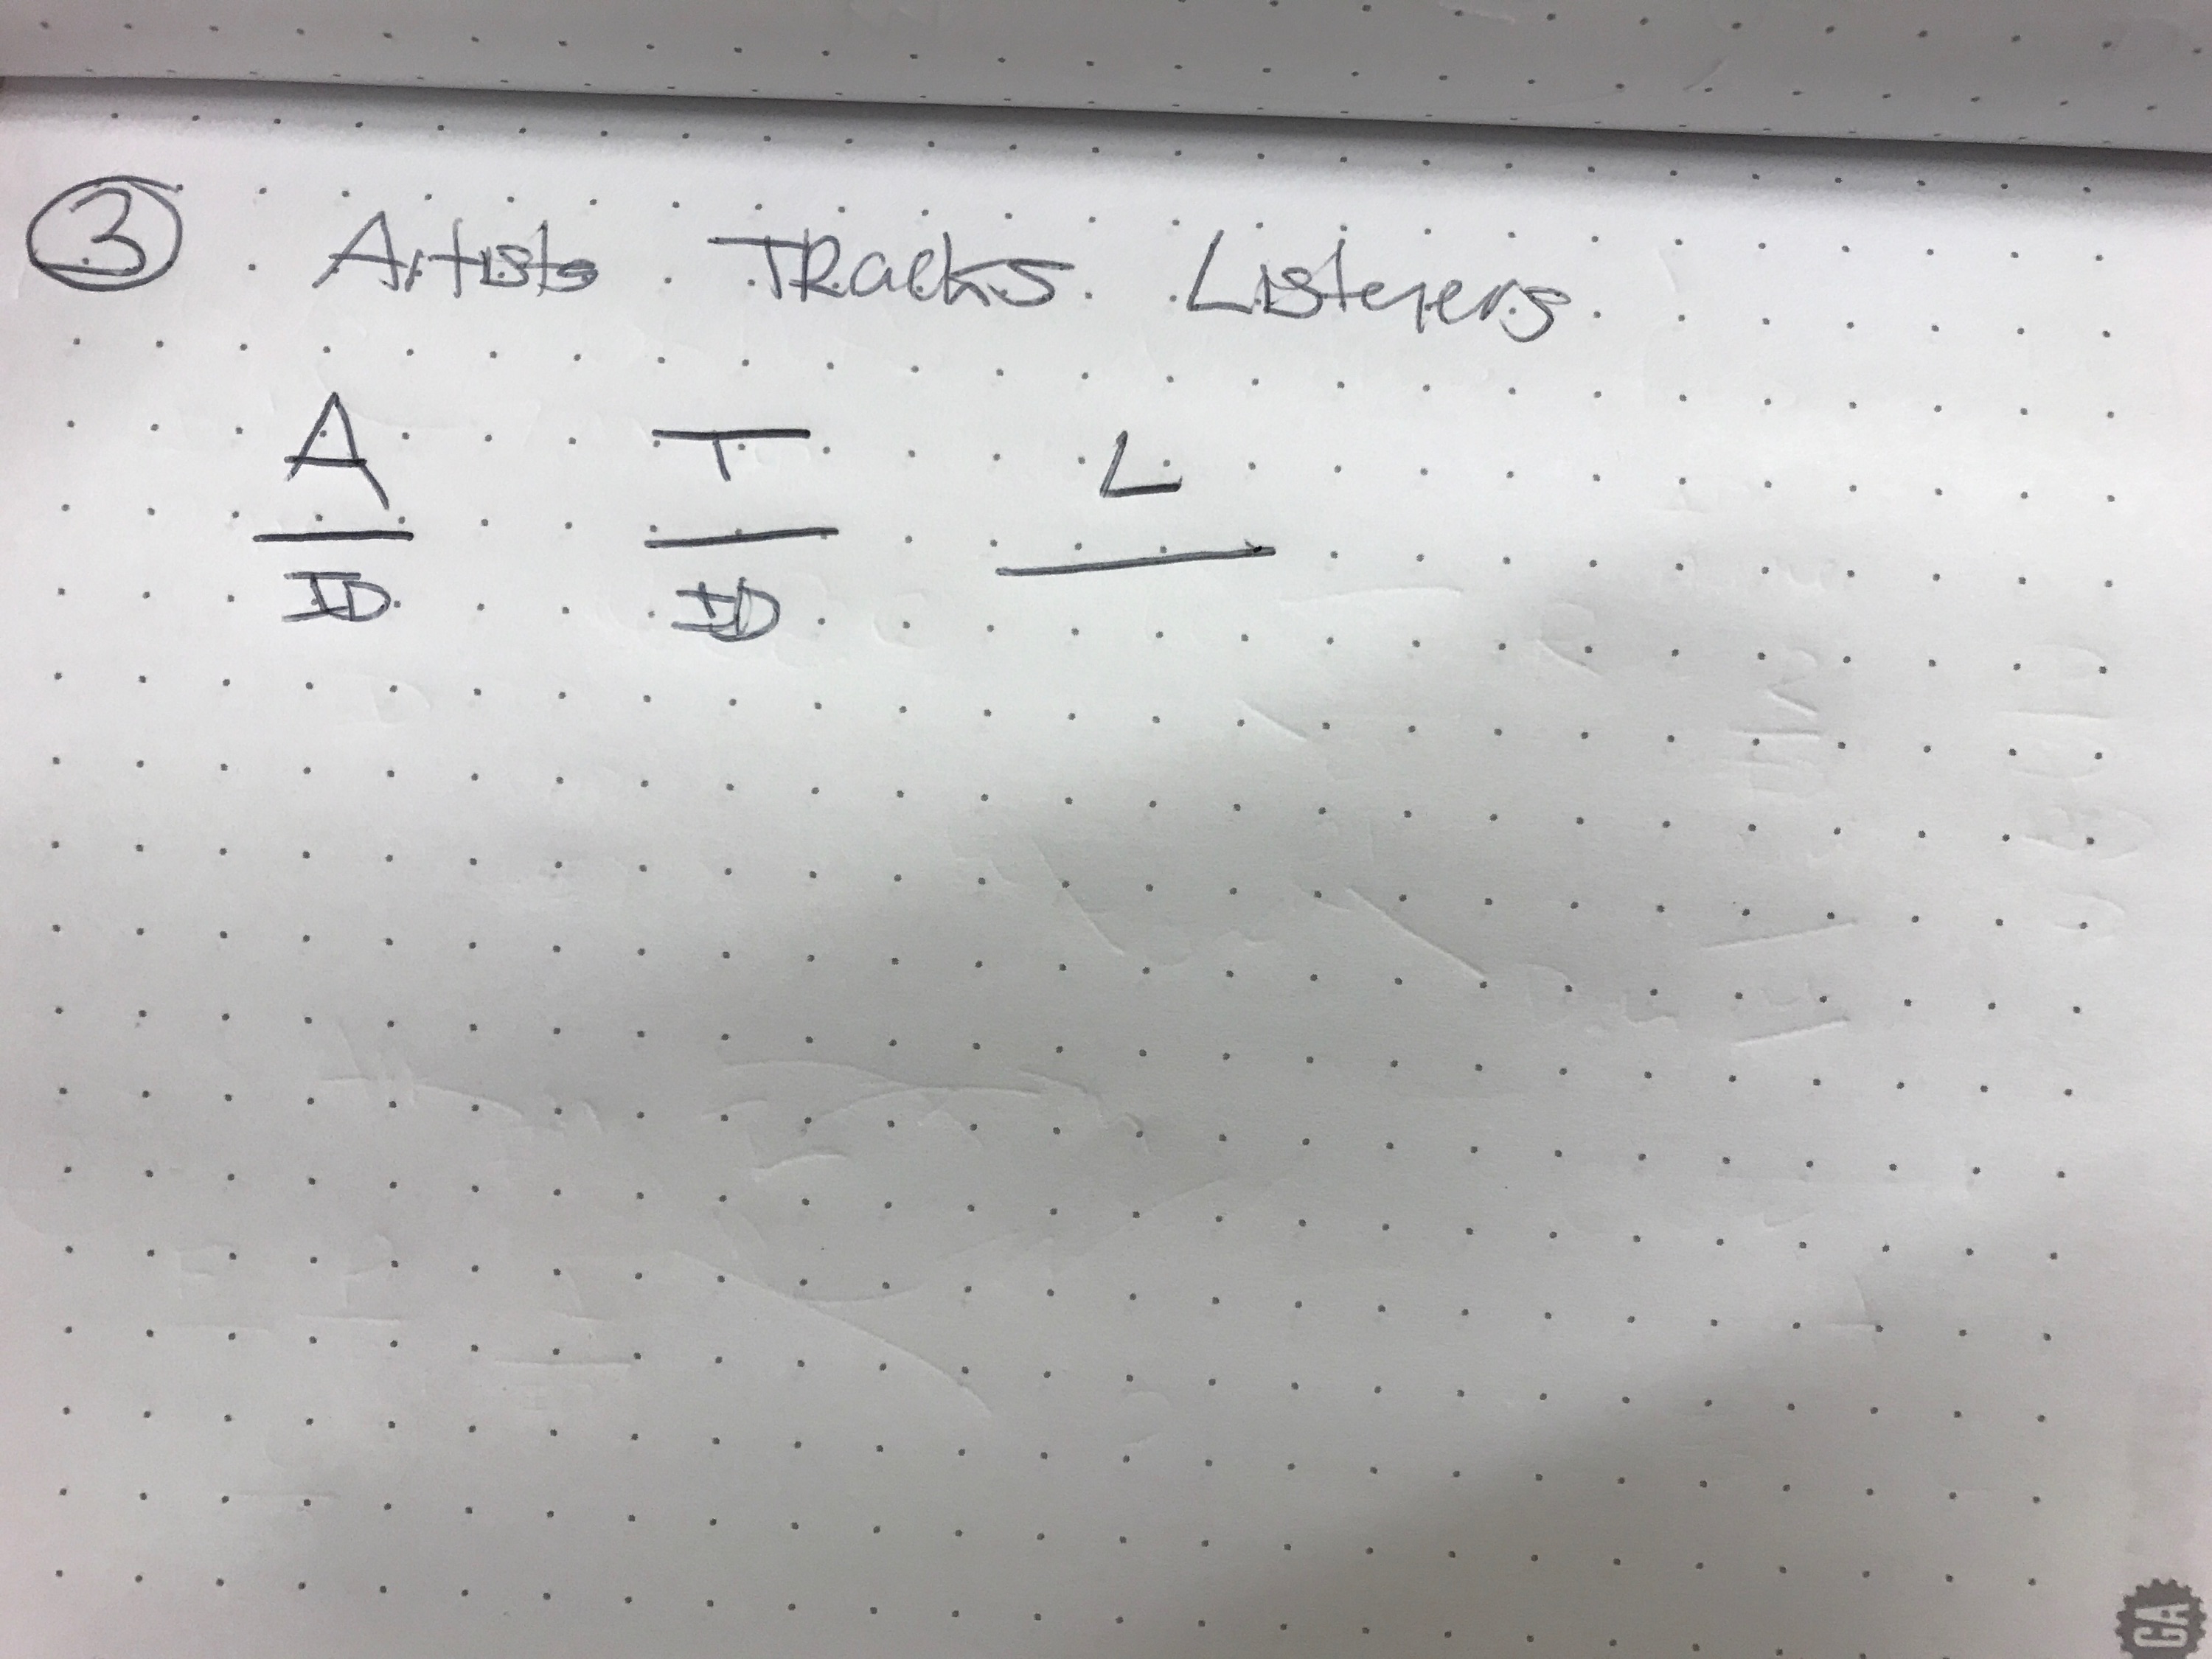 3 Artists Tracks Listeners
A T L
ID ID
GA